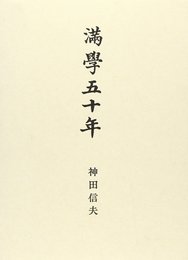 滿學五十年
神田信夫